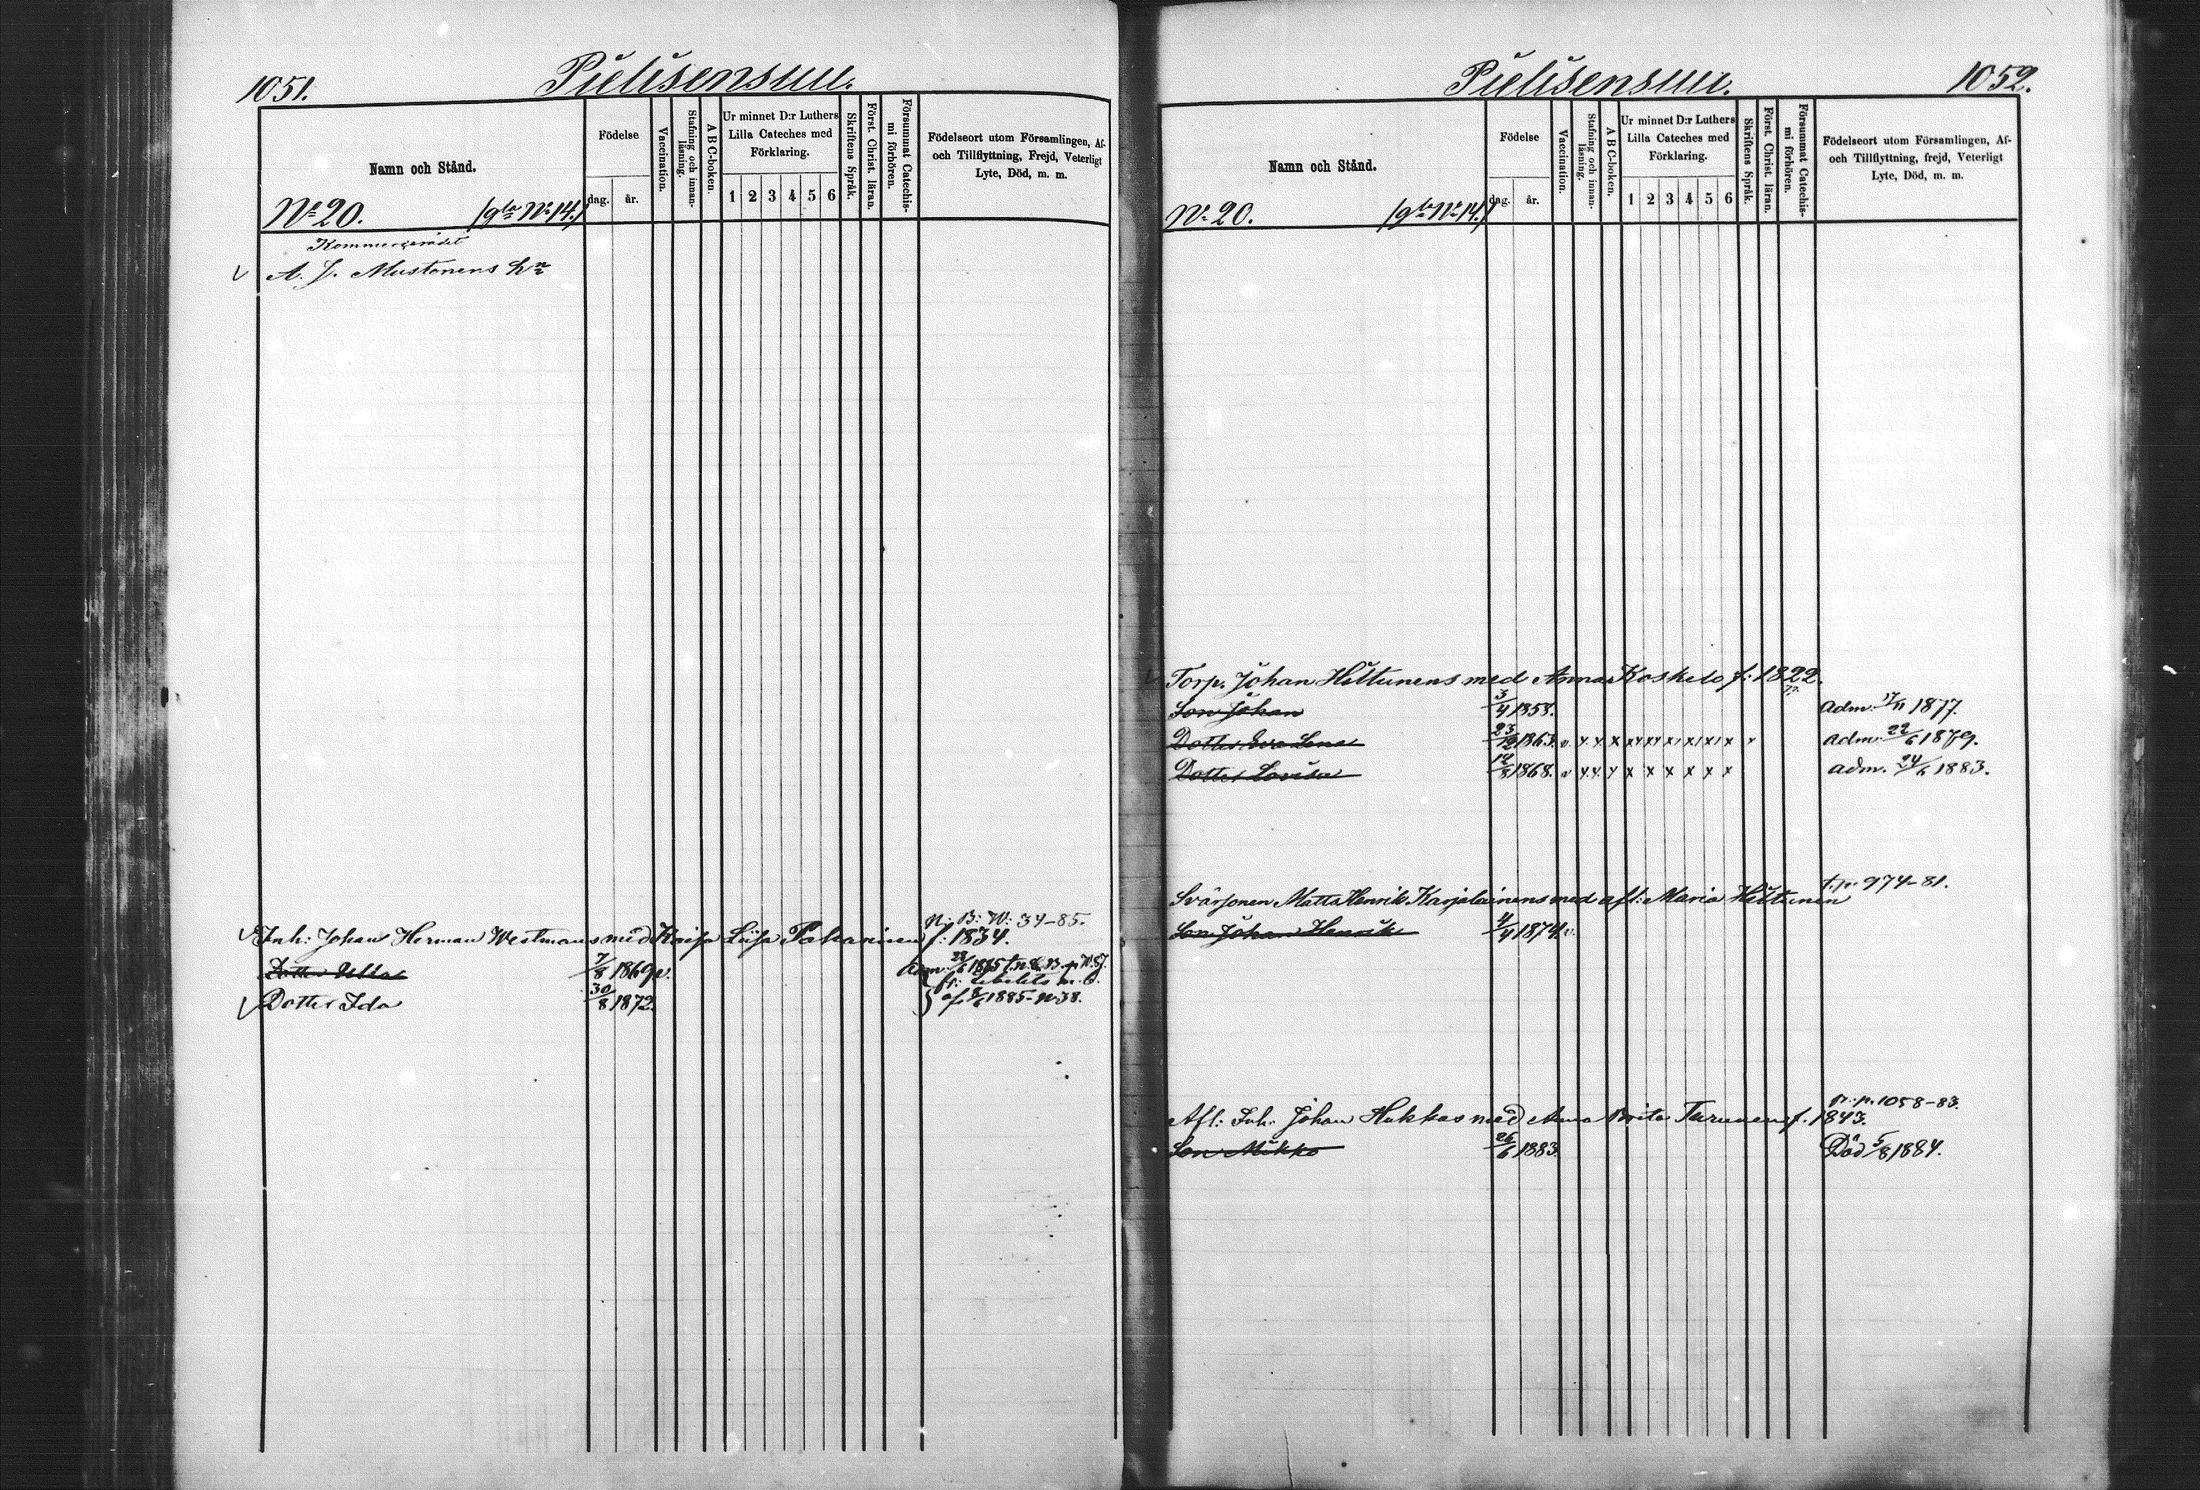 1051.
Pielisensuu.
Namn och Stånd.
Födelse
dag.
år.
Vaccination.
Stafning och innan-läsning.
A B C-boken.
Ur minnet D:r Luthers
Lilla Cateches med
Förklaring.
1 2 3 4 5 6
Skriftens Språk.
Först. Christ. läran.
Försummat Catechis-
mi förhören.
Födelseort utom Församlingen, Af-
och Tillflyttning, Frejd, Veterligt
Lyte, Död, m. m.
No 20. (gla No 14.)
Kommerserådet
A. J. Mustonens hn
N: B: W: 34-85.
Inh: Johan Herman Westmans med Kaisa Liisa Pakarinen f: 1834.
Dotter Ulla 7/8 1869 v.
Dotter Ida 30/8 1872.
1885-N 38.
Pielisensuu.
1052.
Namn och Stånd.
Födelse
dag.
år.
Vaccination.
Stafning och innan-läsning.
A B C-boken.
Ur minnet D:r Luthers
Lilla Cateches med
Förklaring.
1 2 3 4 5 6
Skriftens Språk.
Först. Christ. läran.
Försummat Catechis-
mi förhören.
Födelseort utom Församlingen, Af-
och Tillflyttning, frejd, Veterligt
Lyte, Död, m. m.
No 20. (gla No 14.)
Torp. Johan Hiltunens med Anna Koskelo f: 1822.
Son Johan 3/4 1858. adm. 17/11 1877.
Dotter Eva Lena 23/12 1863. v. x x x x x x x x x x adm. 22/6 1879.
Dotter Lovisa 12/8 1868. v x x x x x x x x x adm. 24/6 1883.
t. p. 974-81.
Svärsonen Matts Henrik Karjalainens med afl: Maria Hiltunen
Son Johan Henrik 4/4 1874. v.
fr. p. 1058-83.
Afl: Inh. Johan Hukkas med Anna Brita Turunen f. 1843.
Son Mikko 26/6 1883. Död 5/8 1884.